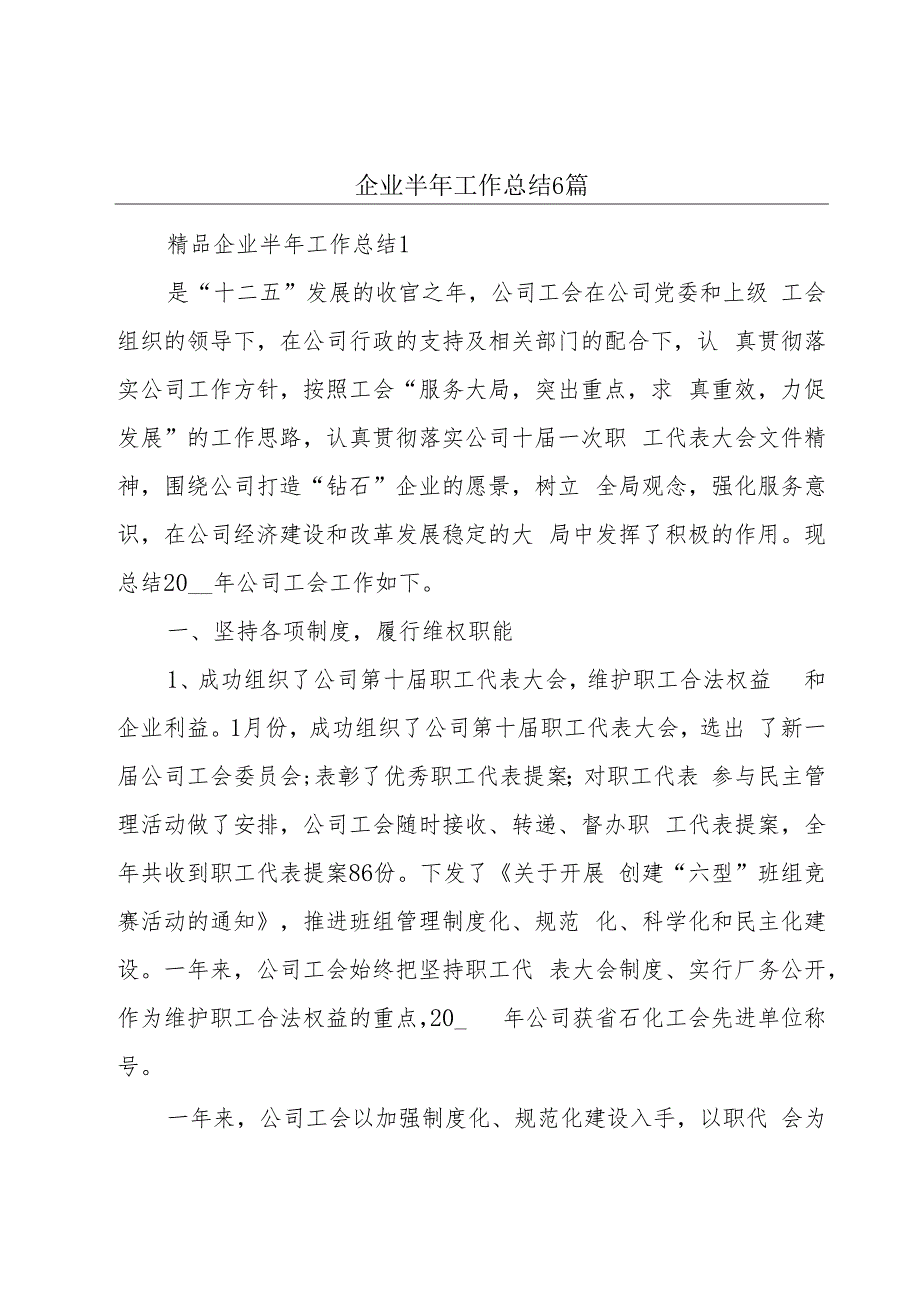 企业半年工作总结6篇
精品企业半年工作总结1
是“十二五”发展的收官之年，公司工会在公司党委和上级 工会
组织的领导下，在公司行政的支持及相关部门的配合下，认 真贯彻落
实公司工作方针，按照工会“服务大局，突出重点，求 真重效，力促
发展”的工作思路，认真贯彻落实公司十届一次职 工代表大会文件精
神，围绕公司打造“钻石”企业的愿景，树立 全局观念，强化服务意
识，在公司经济建设和改革发展稳定的大 局中发挥了积极的作用。现
总结20__年公司工会工作如下。
一、坚持各项制度，履行维权职能
1、成功组织了公司第十届职工代表大会，维护职工合法权益 和
企业利益。1月份，成功组织了公司第十届职工代表大会，选出 了新一
届公司工会委员会;表彰了优秀职工代表提案；对职工代表 参与民主管
理活动做了安排，公司工会随时接收、转递、督办职 工代表提案，全
年共收到职工代表提案86份。下发了《关于开展 创建“六型”班组竞
赛活动的通知》，推进班组管理制度化、规范 化、科学化和民主化建
设。一年来，公司工会始终把坚持职工代 表大会制度、实行厂务公开，
作为维护职工合法权益的重点,20_ 年公司获省石化工会先进单位称
号。
一年来，公司工会以加强制度化、规范化建设入手，以职代 会为